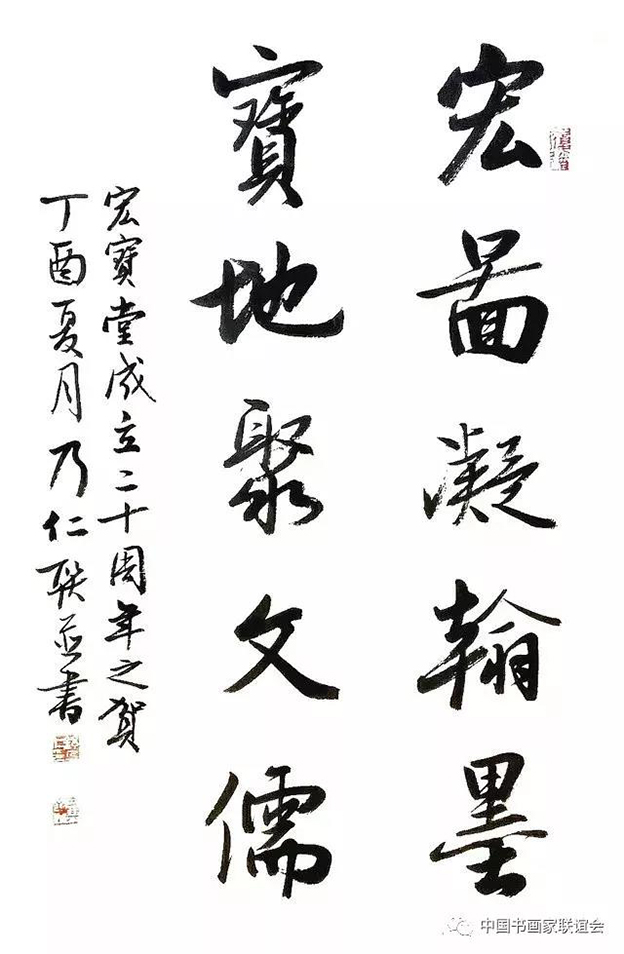 宏图凝翰墨
寶地聚文儒
宏寶堂成立二十周年之贺
丁酉夏月乃仁联并書
中国书画家联谊会